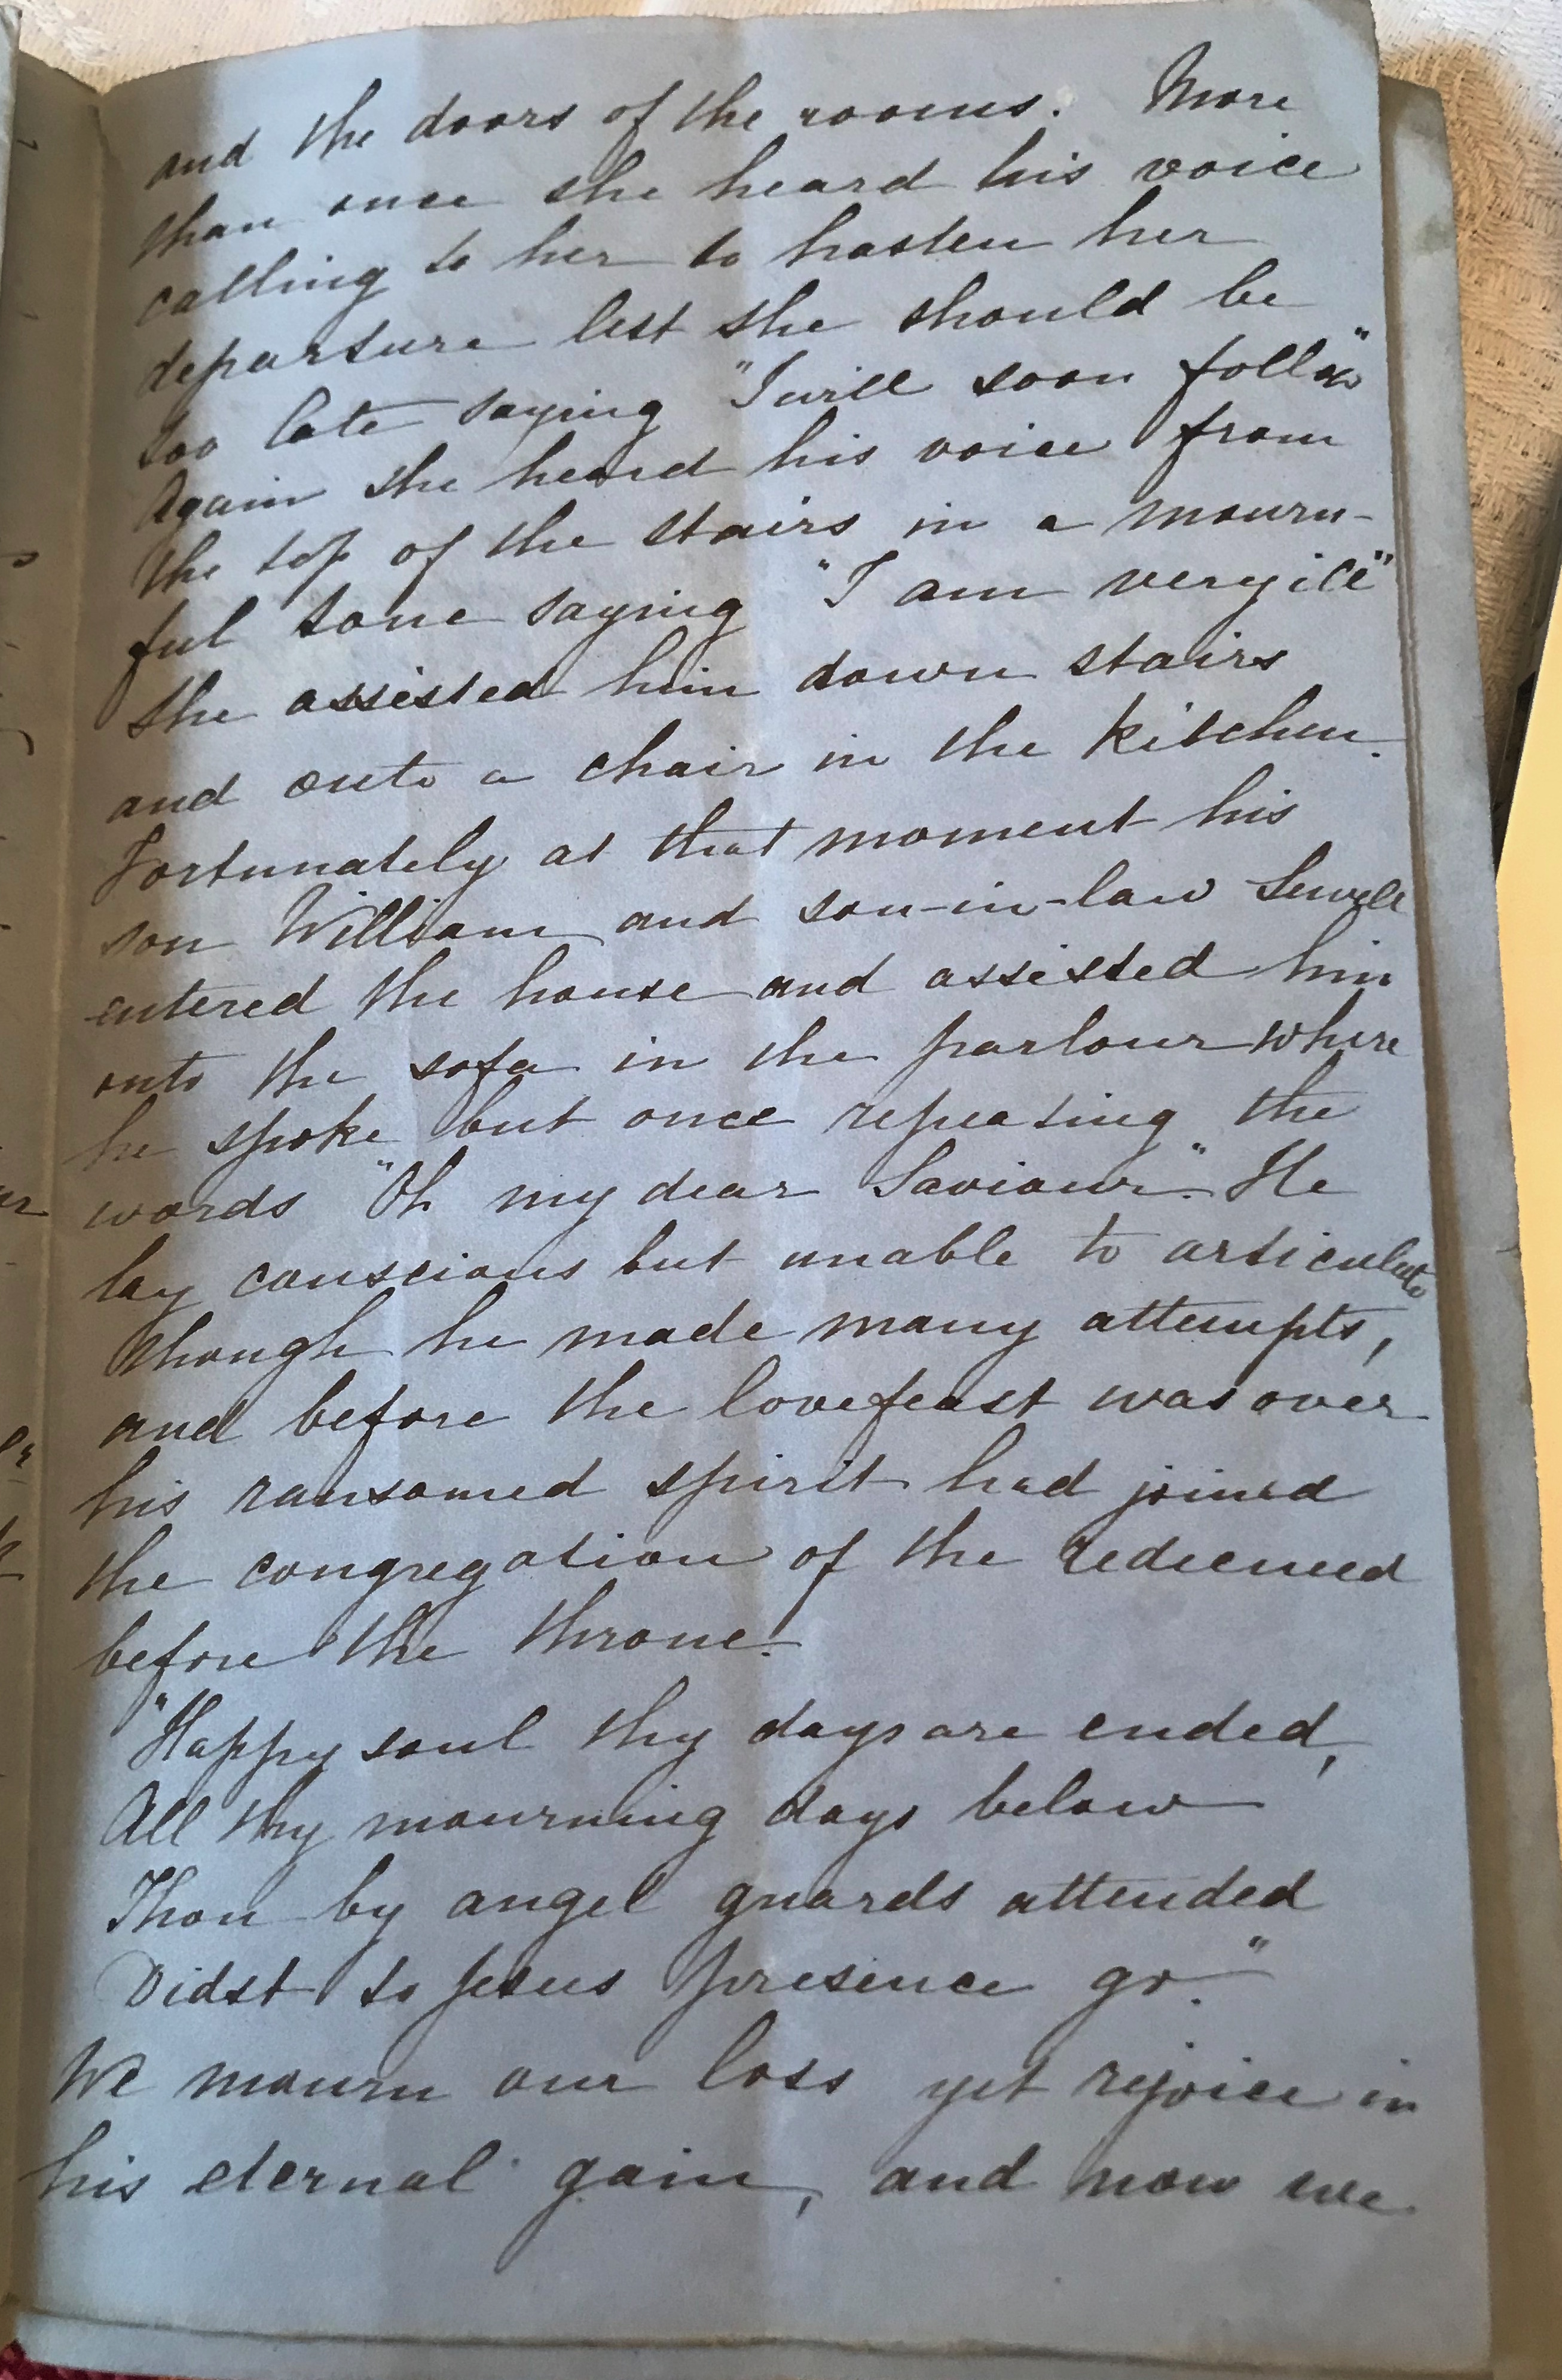 and the doors of the rooms. More
than once she heard his voice
calling to her to hasten her
departure lest she should be
too late saying "I will soon follow"
Again she heard his voice from
the top of the stairs in a mourn-
ful tone saying "I am very ill"
She assisted him down stairs
and onto a chair in the kitchen.
Fortunately at that moment his
son William and son-in-law Sewell
entered the house and assisted him
onto the sofa in the parlour where
he spoke but once repeating the
words "Oh my dear Saviour". He
lay conscious but unable to articulate
though he made many attempts,
and before the lovefeast was over
his ransomed spirit had joined
the congregation of the redeemed
before the throne.
"Happy soul thy days are ended,
All thy mourning days below
Thou by angel guards attended
Didst to Jesus presence go."
We mourn our loss yet rejoice in
his eternal gain, and now we